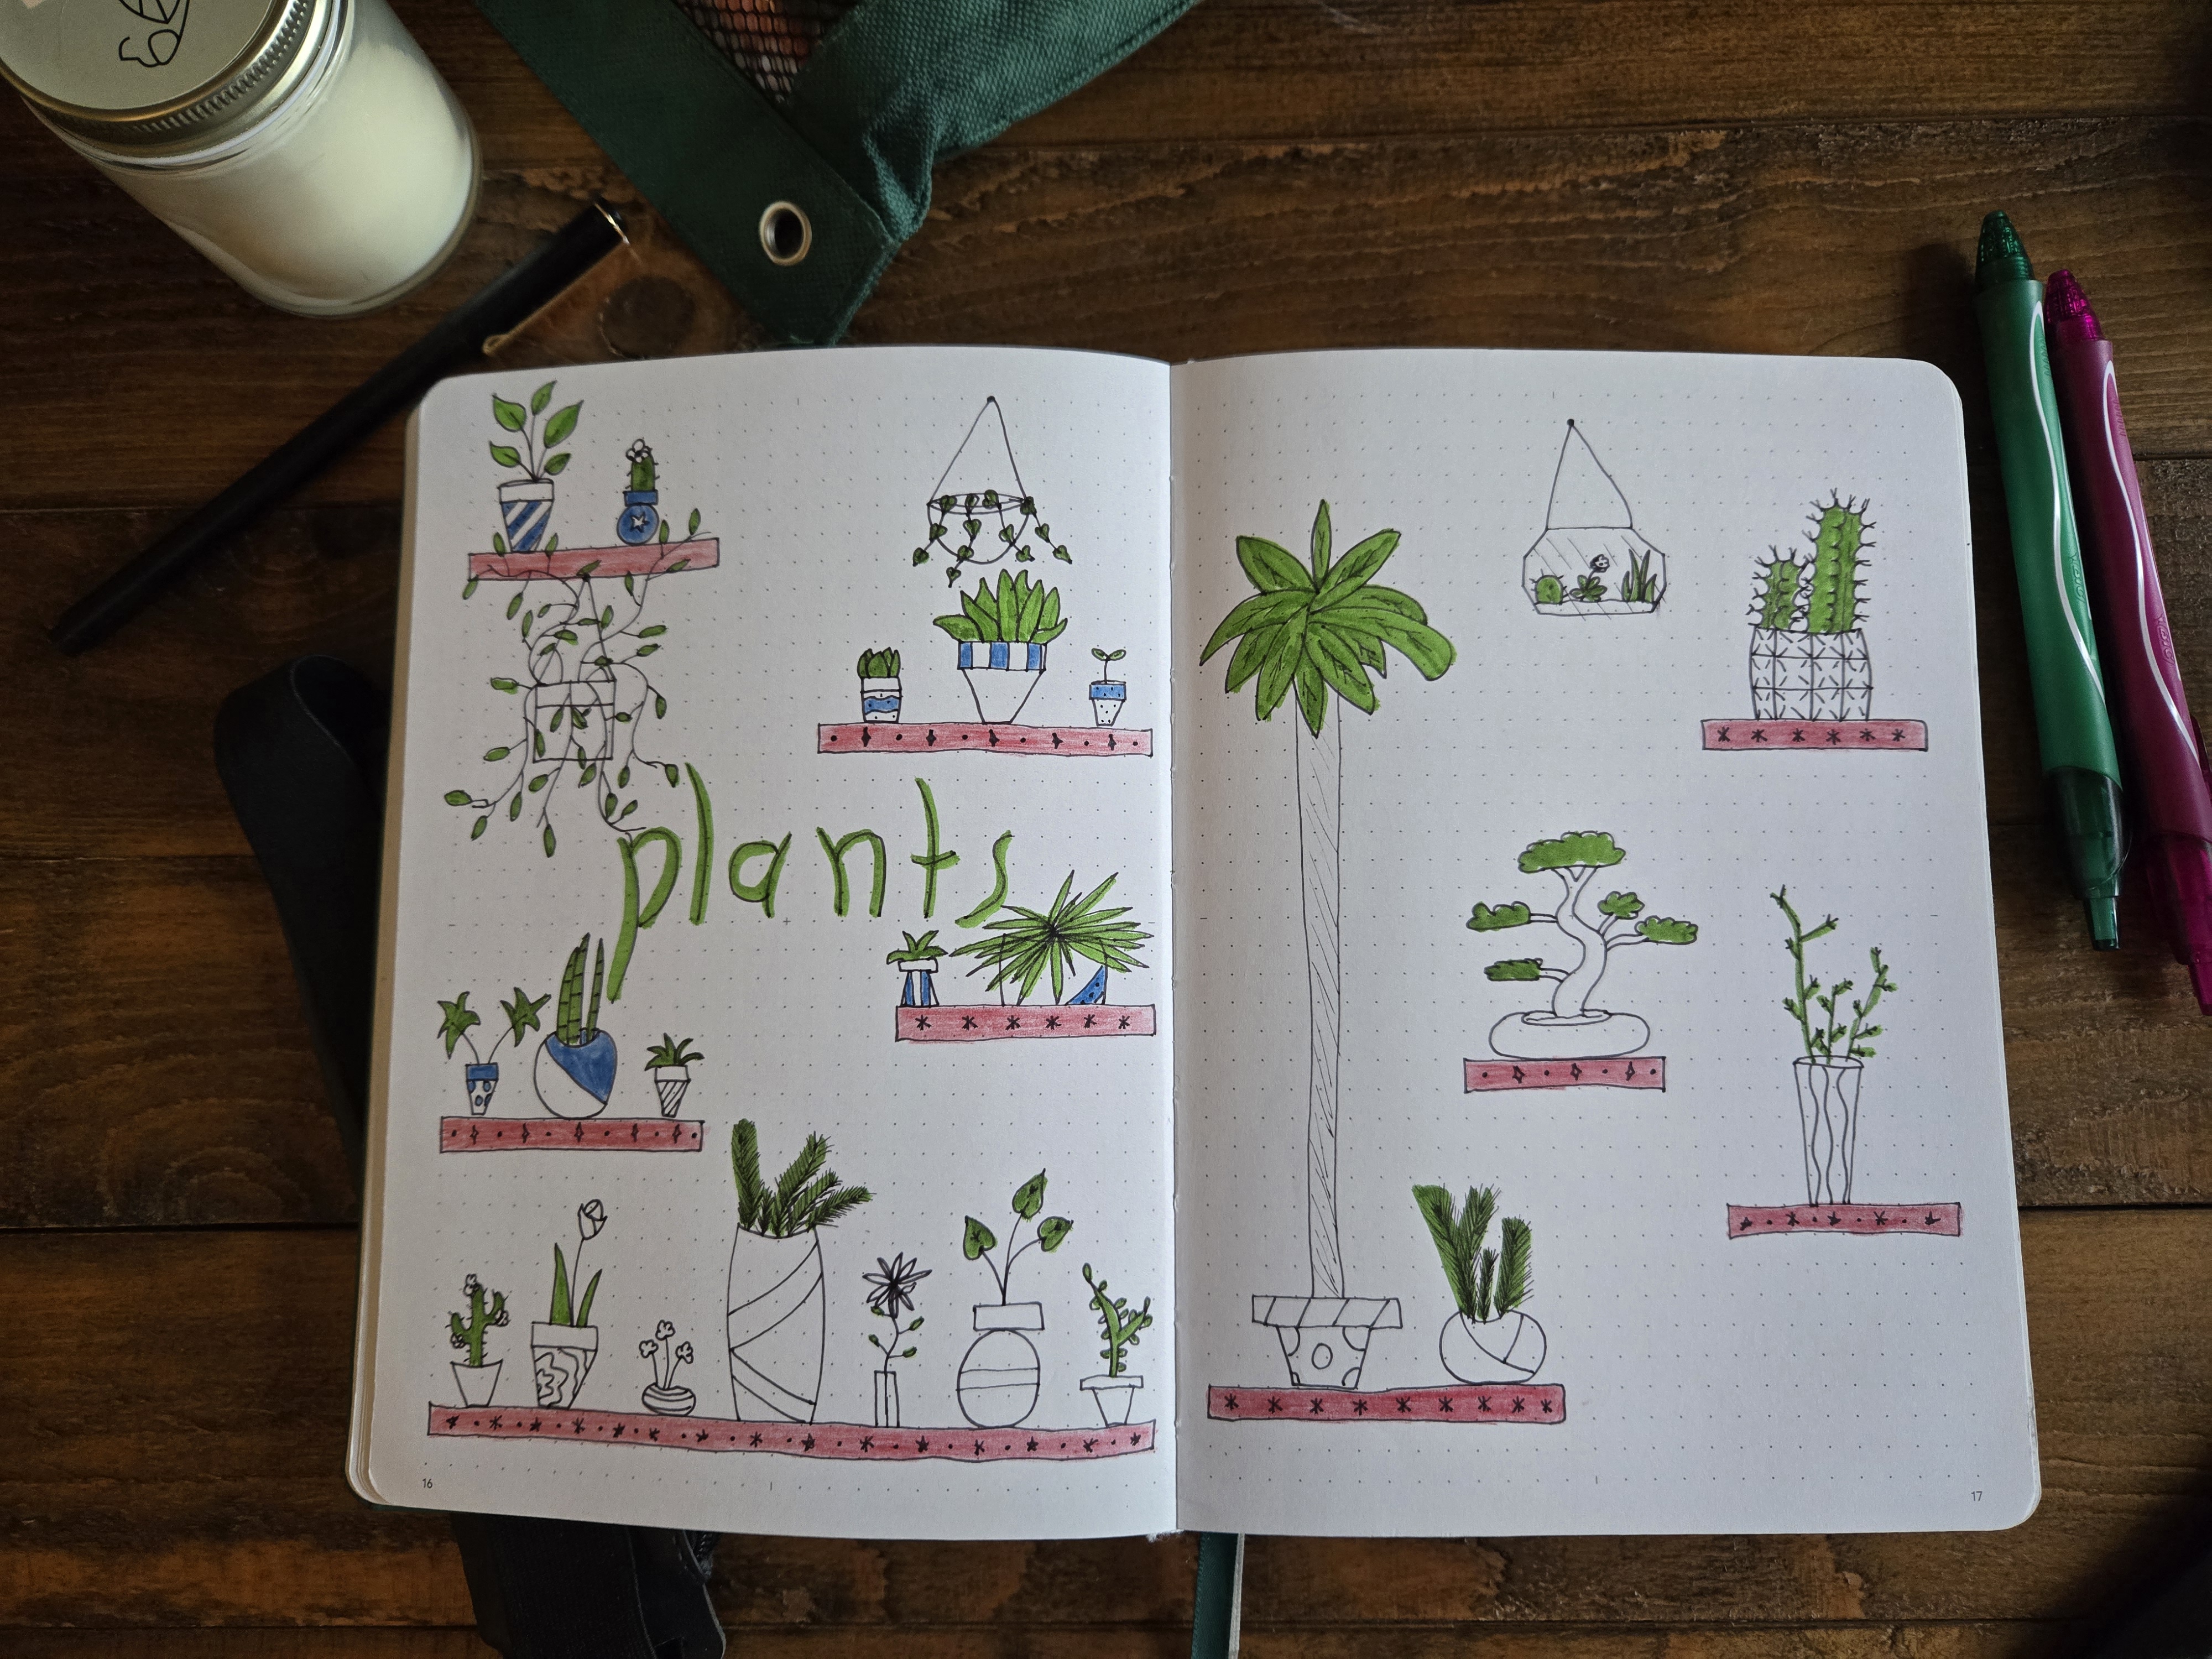 plants
16
17